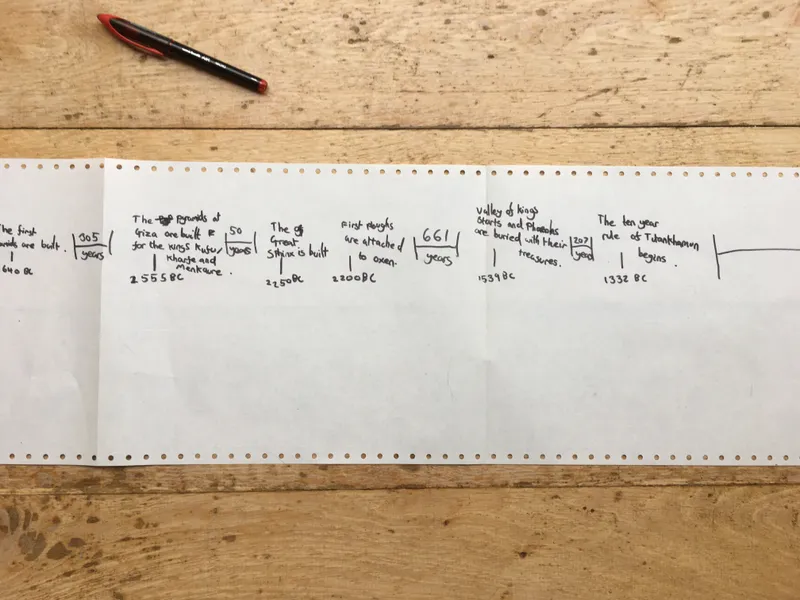 The first
are built.
640 BC
305
years
The Pyramids at
Giza are built
for the kings Kufu,
Kharfe and
Menkaure.
2555 BC
50
years
The
Great
Sphinx is built
2250 BC
First ploughs
are attached
to oxen.
2200 BC
661
years
Valley of Kings
Starts and Pharaohs
are buried with their
treasures.
1539 BC
207
year
The ten year
rule of Tutankhamun
begins.
1332 BC